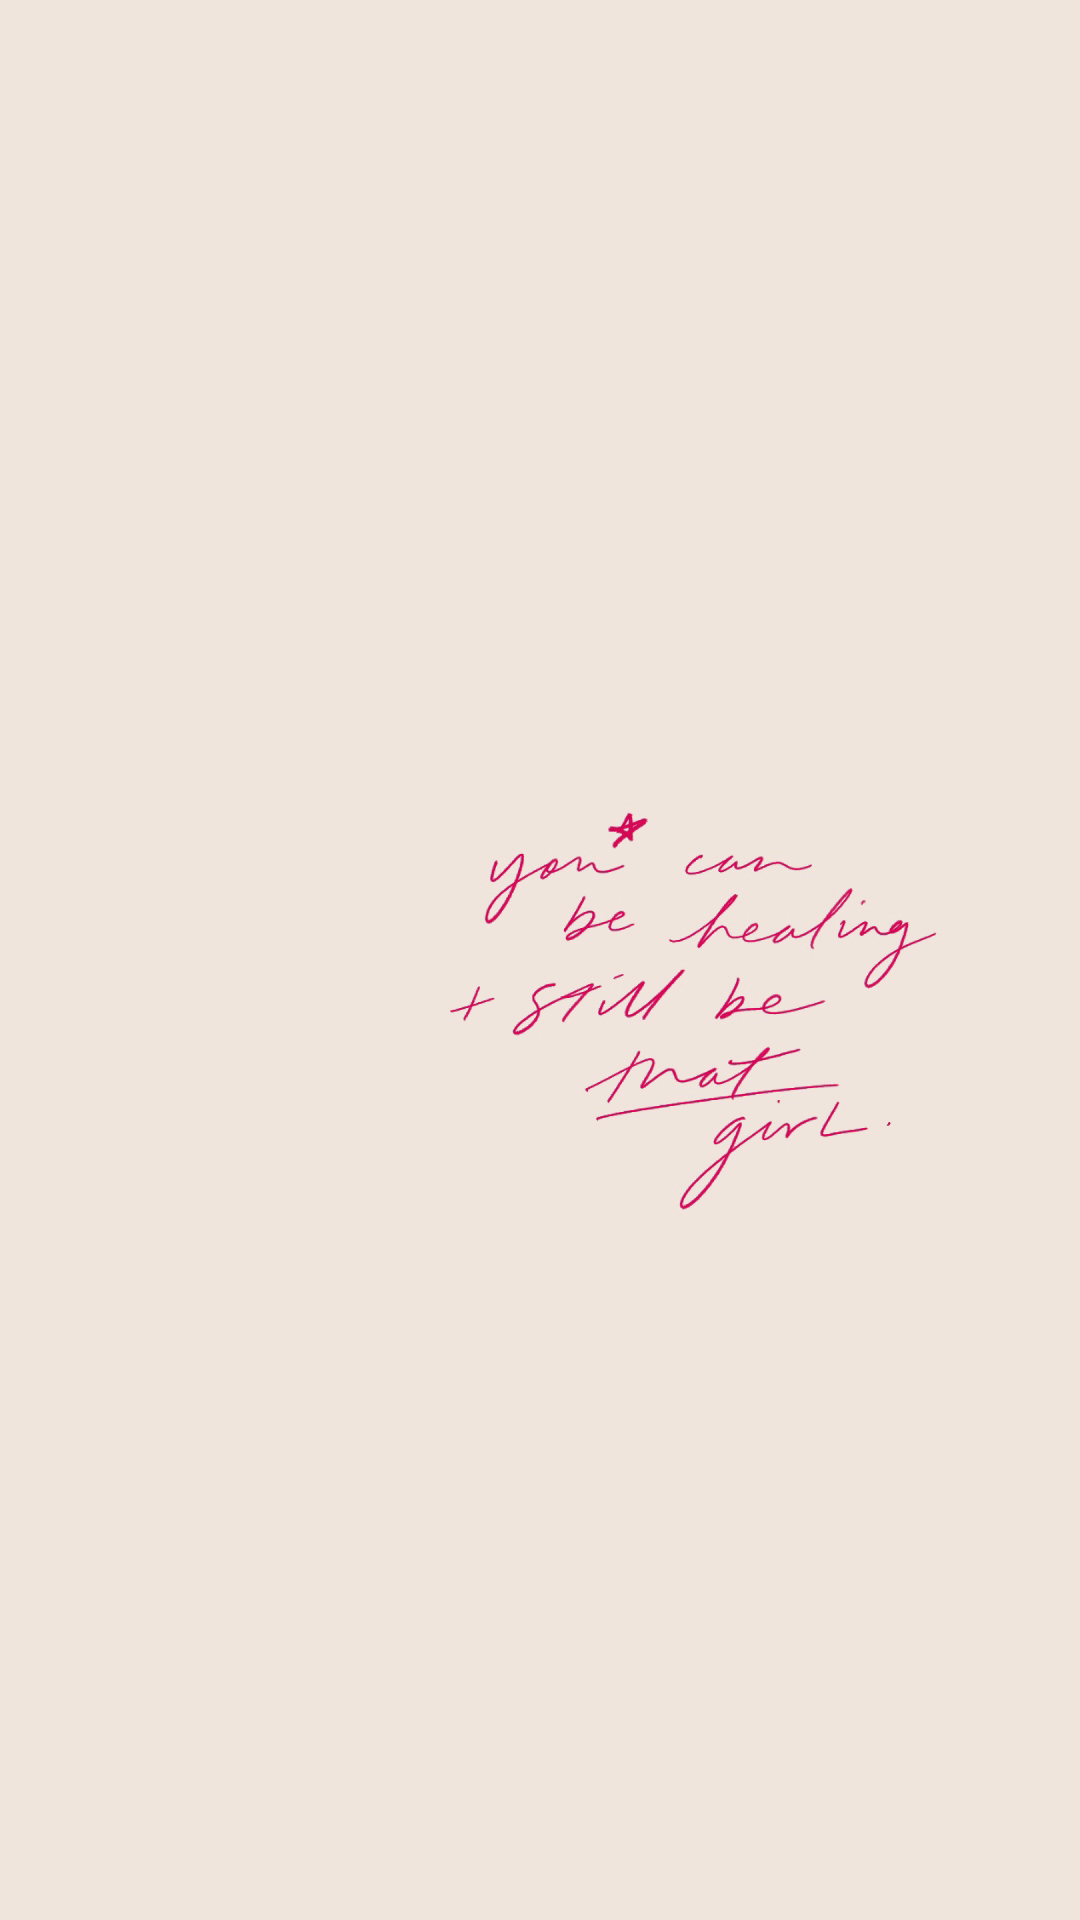 you* can
be healing
+ still be
that
girl.